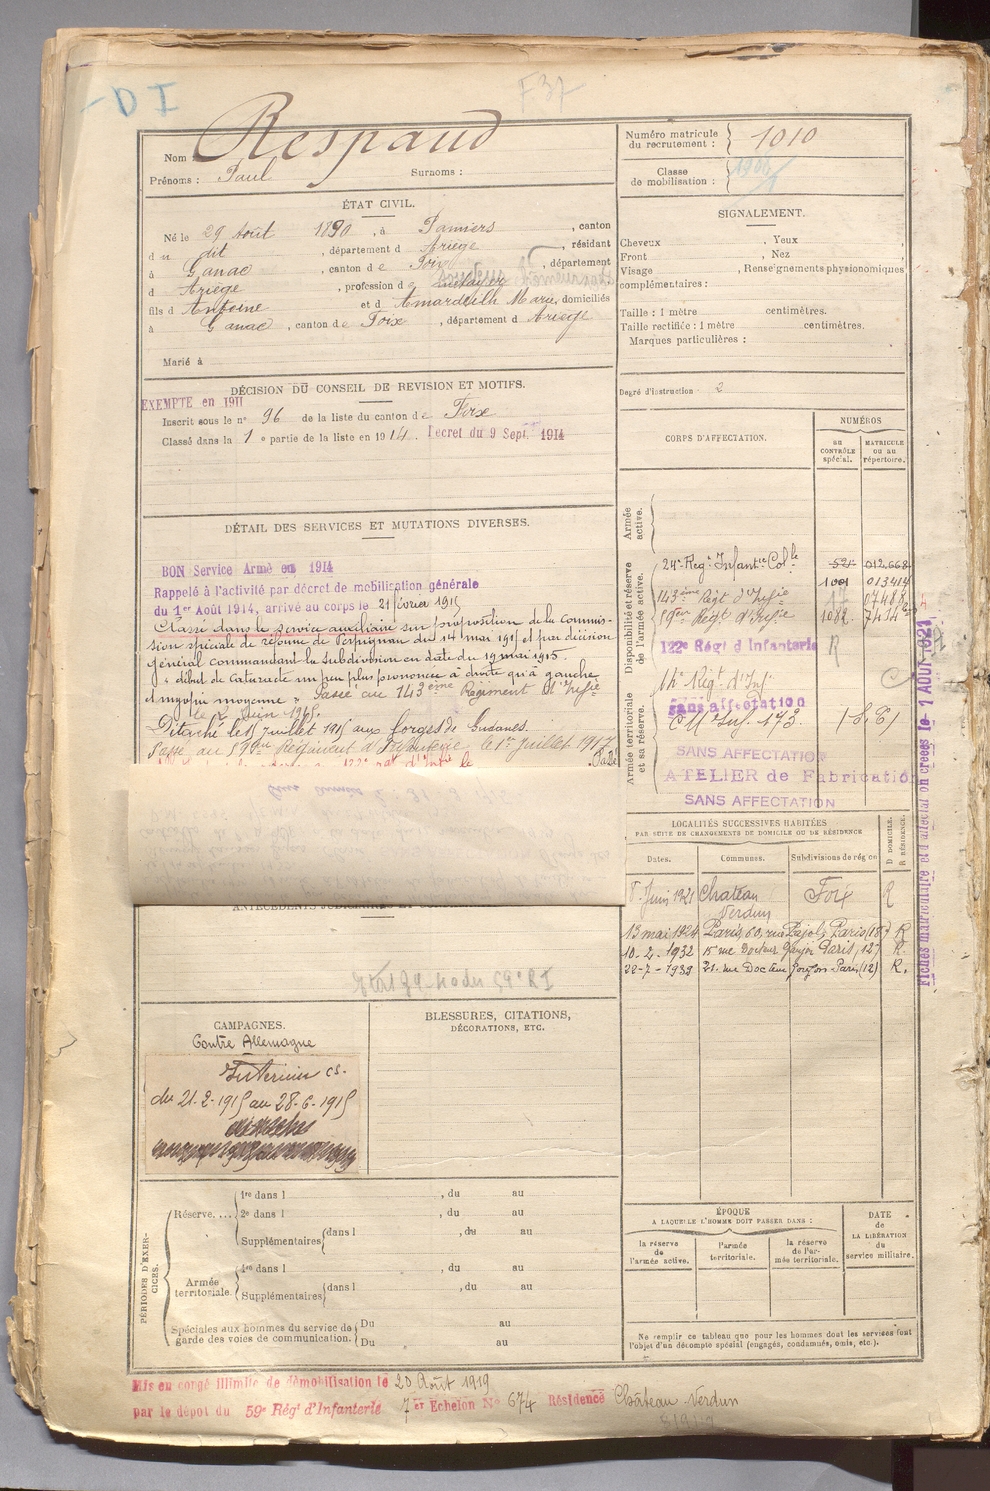 D I
F 37
Nom : Respaud
Prénoms : Paul Surnoms :
Numéro matricule du recrutement : 1010
Classe de mobilisation :
ÉTAT CIVIL.
Né le 29 Août 1890, à Pamiers, canton
du dit, département d Ariège, résidant
à Ganac, canton de Foix, département
d Ariège, profession de
fils d Antoine et d Amardeilh Marie, domiciliés
à Ganac, canton de Foix, département d Ariège
Marié à
SIGNALEMENT.
Cheveux , Yeux ,
Front , Nez ,
Visage , Renseignements physionomiques
complémentaires :
Taille : 1 mètre centimètres.
Taille rectifiée : 1 mètre centimètres.
Marques particulières :
Degré d'instruction : 2
DÉCISION DU CONSEIL DE REVISION ET MOTIFS.
EXEMPTE en 1911
Inscrit sous le n° 96 de la liste du canton de Foix
Classé dans la 1e partie de la liste en 1914. Decret du 9 Sept. 1914
DÉTAIL DES SERVICES ET MUTATIONS DIVERSES.
BON Service Armé en 1914
Rappelé à l'activité par décret de mobilisation générale
du 1er Août 1914, arrivé au corps le 21 février 1915
Classé dans le service auxiliaire sur proposition de la commis-
sion spéciale de réforme de Perpignan du 14 mai 1915 et par décision
général commandant la subdivision en date du 19 mai 1915.
« début de Cataracte un peu plus prononcée à droite qu'à gauche
et myopie moyenne » Passé au 143ème Régiment d'Infie
le 12 Juin 1915.
Détaché le 5 juillet 1915 aux forges de Gudanes.
Passé au 59ème Régiment d'Infanterie le 1er Juillet 1917
Passé
CORPS D'AFFECTATION.
NUMÉROS
au CONTRÔLE spécial.
MATRICULE ou au répertoire.
Armée active.
Disponibilité et réserve de l'armée active.
24e Regt Infantie Colle 521 012.668
1001 013414
143ème Régt d'Infie 17 07488
59ème Régt d'Infie 1082. 7434
122e Régt d Infanterie R
14e Régt d'Inf
sans affectation
CM Inf. 173.
Armée territoriale et sa réserve.
SANS AFFECTATION
ATELIER de Fabricatio
SANS AFFECTATION
Fiches matriculaire et d affectation créées le 1 AOUT 1921
LOCALITÉS SUCCESSIVES HABITÉES
PAR SUITE DE CHANGEMENTS DE DOMICILE OU DE RÉSIDENCE
Dates. Communes. Subdivisions de région D DOMICILE. R RÉSIDENCE.
8 Juin 1921 Chateau Verdun Foix R
13 mai 1924 Paris, 60, rue Pajol, Paris (18e) R
10-2-1932 15 rue Docteur Goujon Paris (12) R.
22-7-1939 21. rue Docteur Goujon Paris (12) R.
CAMPAGNES.
Contre Allemagne
Intérieur CS.
du 21-2-1915 au 28-6-1915
BLESSURES, CITATIONS,
DÉCORATIONS, ETC.
PÉRIODES D'EXERCICES.
Réserve....
1re dans l , du au
2e dans l , du au
Supplémentaires dans l , du au
Armée territoriale.
1re dans l , du au
Supplémentaires dans l , du au
Spéciales aux hommes du service de garde des voies de communication. Du au
Du au
ÉPOQUE
A LAQUELLE L'HOMME DOIT PASSER DANS :
la réserve de l'armée active.
l'armée territoriale.
la réserve de l'armée territoriale.
DATE de LA LIBÉRATION du service militaire.
Ne remplir ce tableau que pour les hommes dont les services font
l'objet d'un décompte spécial (engagés, condamnés, omis, etc.).
Mis en congé illimité de démobilisation le 20 Août 1919
par le dépôt du 59e Régt d'Infanterie 7er Echelon No 674 Résidence Château Verdun